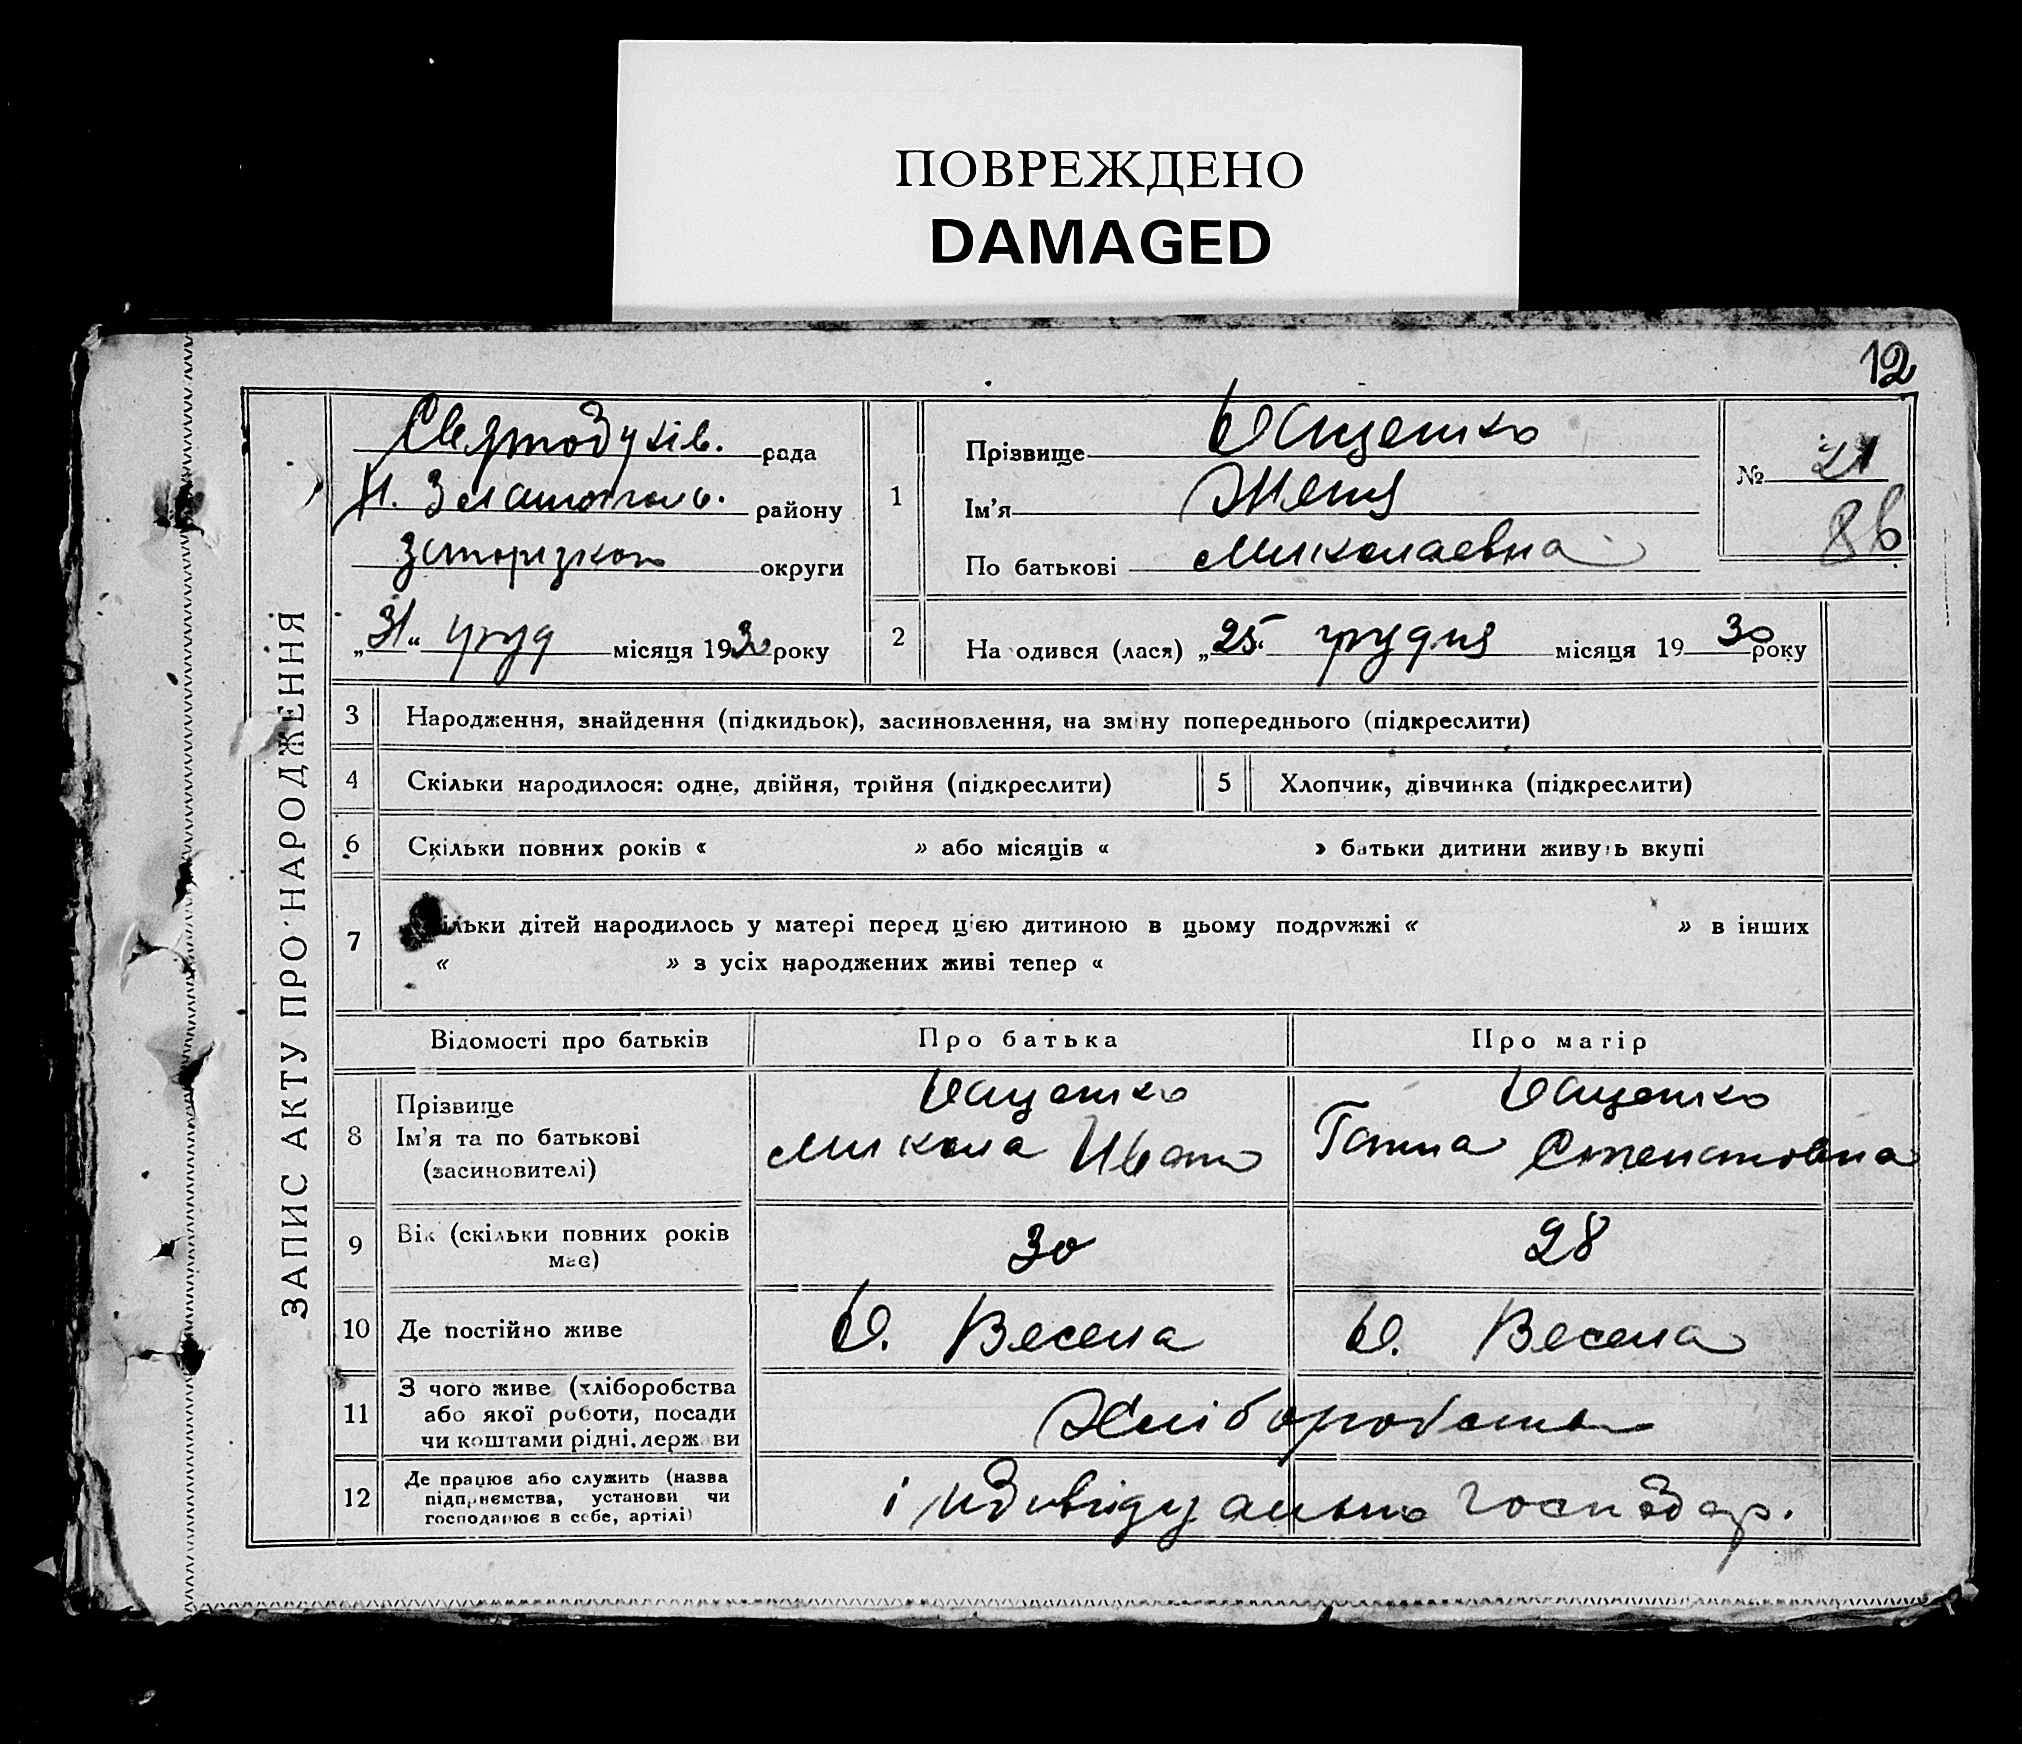 ПОВРЕЖДЕНО
DAMAGED
12
ЗАПИС АКТУ ПРО НАРОДЖЕННЯ
Святодухів. рада
Н. Златопіль. району
Запорізкої округи
„31“ груд місяця 1930 року
1 Прізвище Ющенко
Ім'я Женя
По батькові Миколаевна
№ 21
86
2 На одився (лася) „25“ грудня місяця 19 30 року
3 Народження, знайдення (підкидьок), засиновлення, на зміну попереднього (підкреслити)
4 Скільки народилося: одне, двійня, трійня (підкреслити) 5 Хлопчик, дівчинка (підкреслити)
6 Скільки повних років « » або місяців « » батьки дитини живуть вкупі
7 ільки дітей народилось у матері перед цією дитиною в цьому подружжі « » в інших
« » з усіх народжених живі тепер «
Відомості про батьків Про батька Про матір
8 Прізвище
Ім'я та по батькові
(засиновителі)
Ющенко
Микола Иван
Ющенко
Ганна Степановна
9 Вік (скільки повних років
має)
30 28
10 Де постійно живе Ю. Весела Ю. Весела
11 З чого живе (хліборобства
або якої роботи, посади
чи коштами рідні, держави
Хліборобства
12 Де працює або служить (назва
підприємства, установи чи
господарює в себе, артілі)
індивідуально господар.